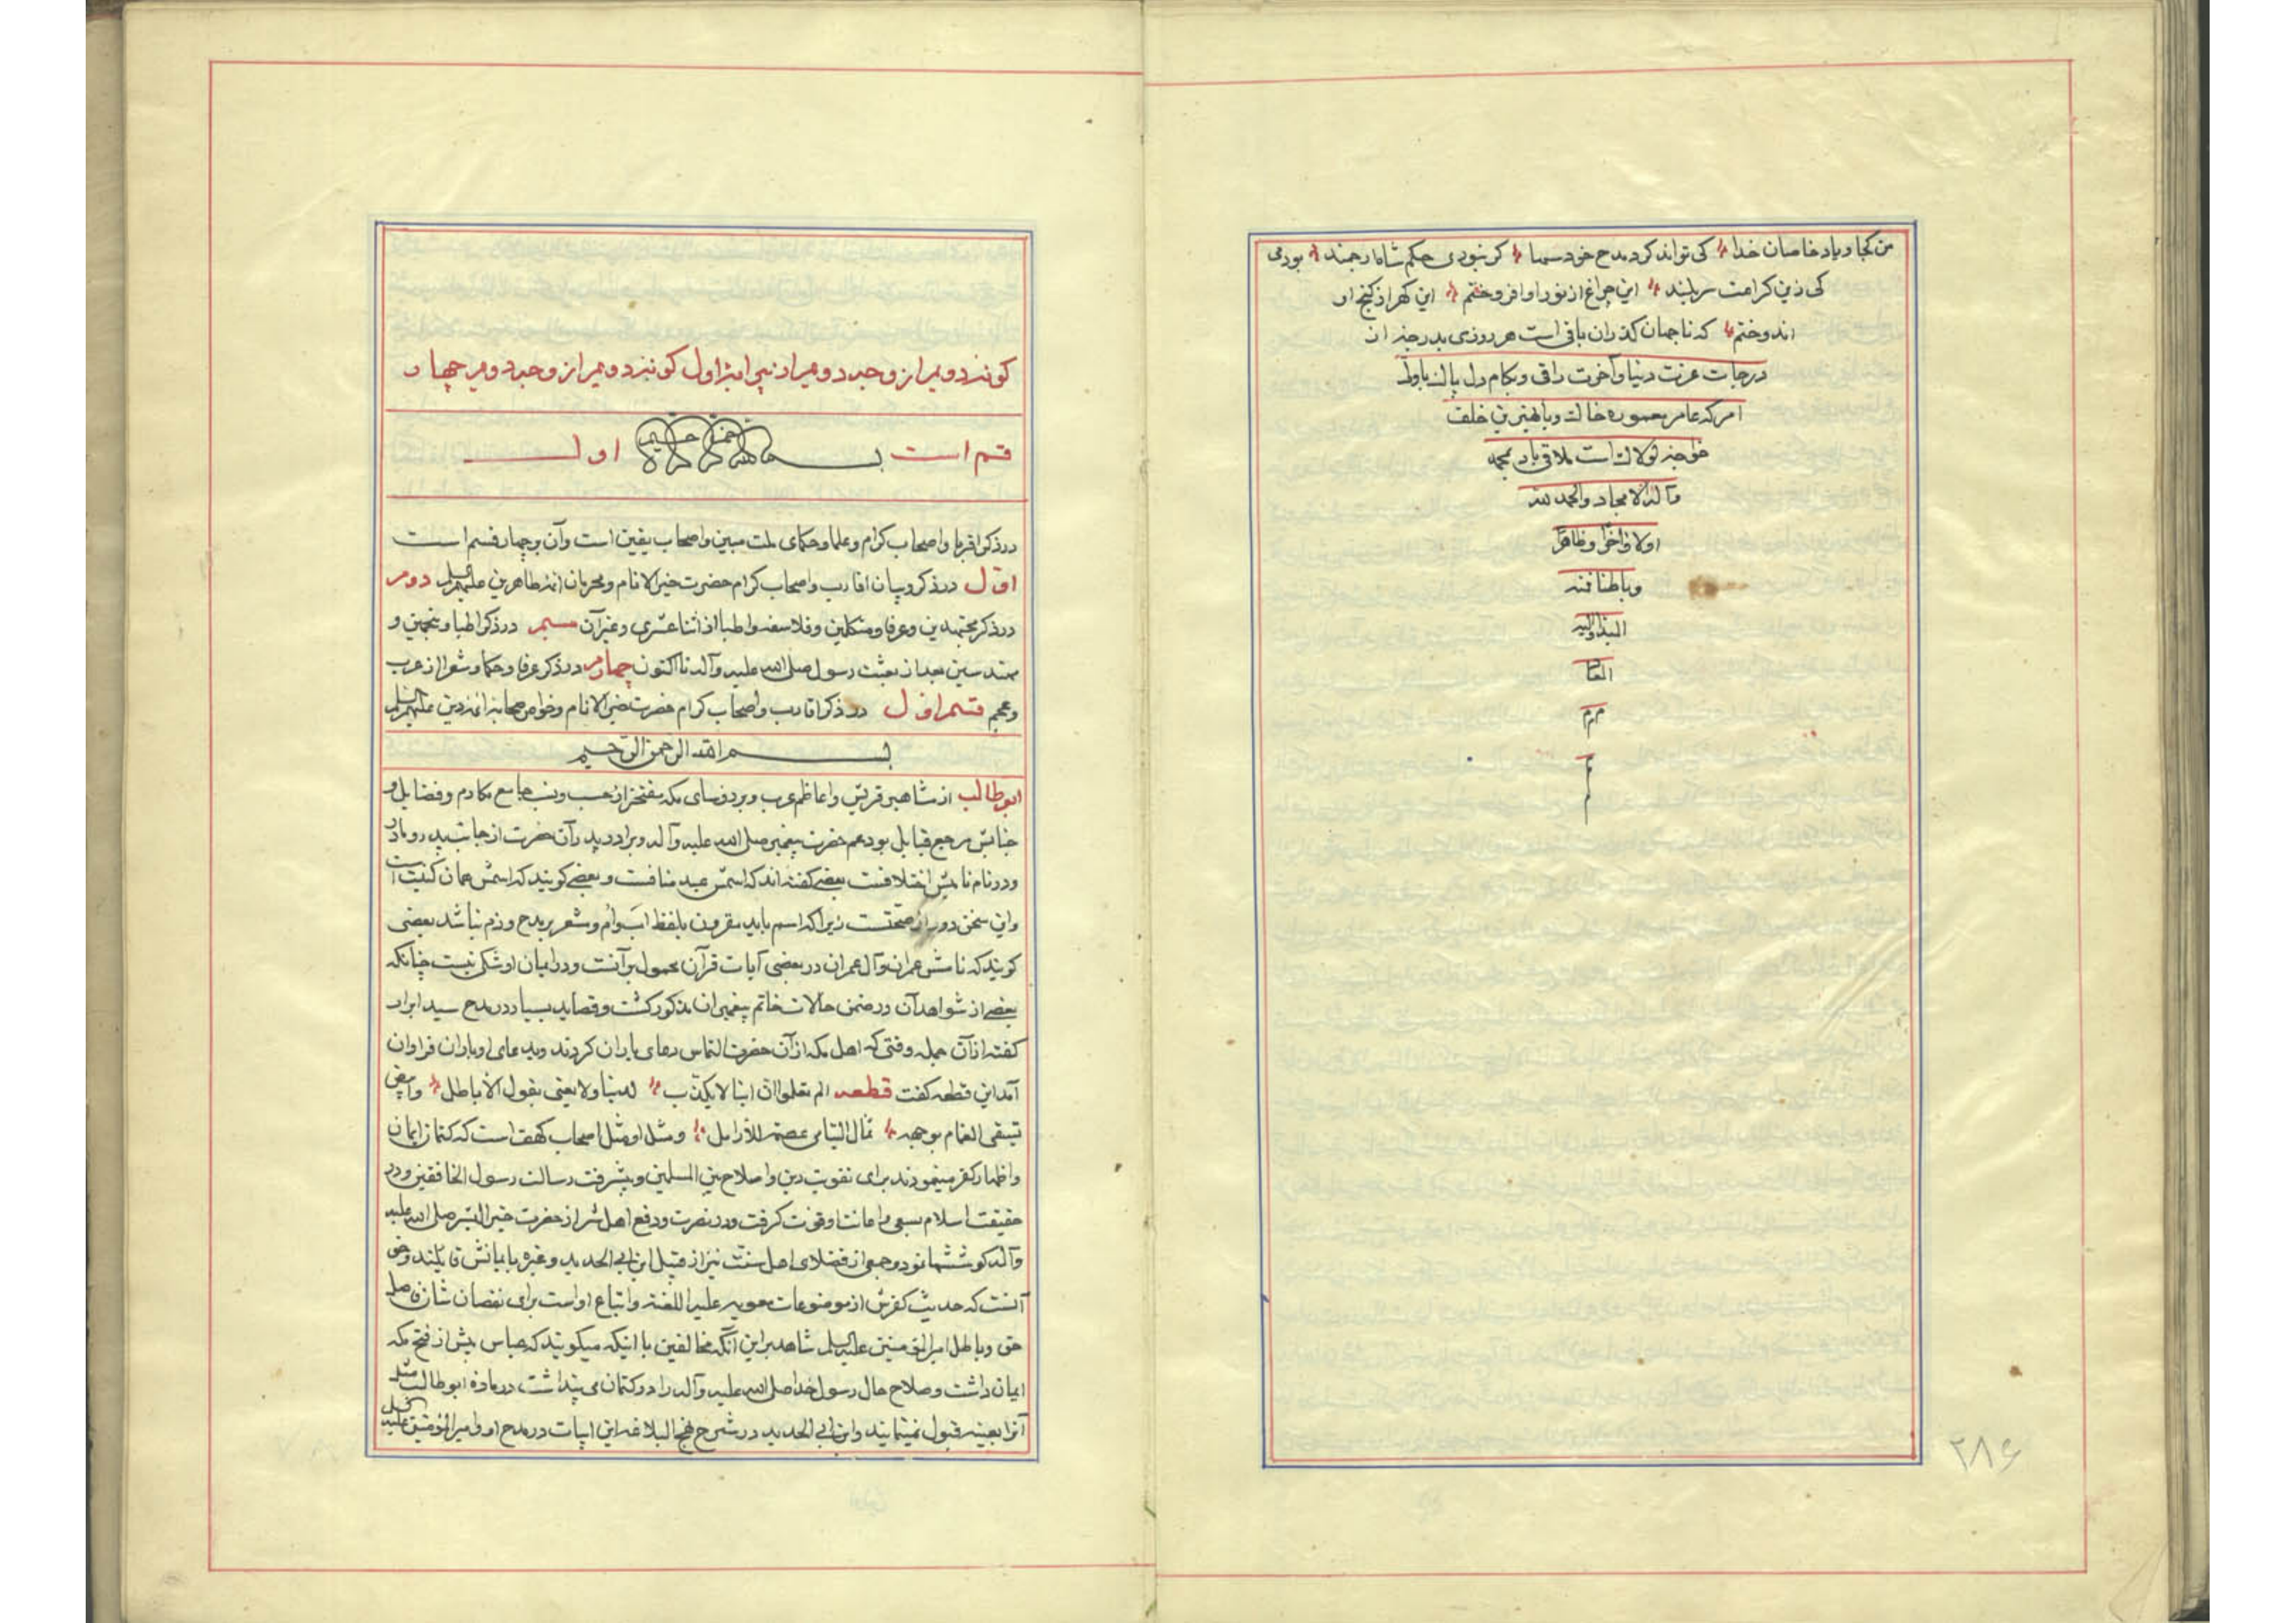 من کجا و یاد خاصان خدا کی تواند کرد مدح خود سها کر نبودی حکم شاه ارجمند بودمی
کی زین کرامت سربلند این چراغ از نور او افروختم این کهر از کنج او
اندوختم که تا جهان کذران باقی است هر روزی بدرجۀ از
درجات عزت دنیا و آخرت راقی و بکام دل پاک
امر که عامر معموره خاک و بابهترین خلف
خواجۀ لولاک است ملاقی باد بمحمد
و آله الامجاد و الحمد لله
اولا و اخرا و ظاهرا
و باطنا فنه
البدا والیه
المعا
م م م
م
۲۸۶
کونۀ دویم از وجد دویم از نیی ایثر اول کونۀ دویم از وجد دویم چهار
قسم است بسم الله الرحمن الرحیم اول
در ذکر اقربا و اصحاب کرام و علما و حکمای ملت مبین و اصحاب یقین است و آن بر چهار قسم است
اول در ذکر و بیان اقارب و اصحاب کرام حضرت خیر الانام و محرمان ائمه طاهرین علیهم السلم دوم
در ذکر مجتهدین و عرفا و متکلمین و فلاسفه و اطبا از اثنا عشری و غیر آن سیم در ذکر اطبا و منجمین و
مهندسین بعد از بعثت رسول صلی الله علیه و آله تا اکنون چهارم در ذکر عرفا و حکما و شعرا از عرب
و عجم قسم اول در ذکر اقارب و اصحاب کرام حضرت خیر الانام و خواص صحابۀ ائمه دین علیهم السلم
بسم الله الرحمن الرحیم
ابوطالب از مشاهیر قریش و اعاظم عرب و بر روسای مکه مفتخر از حسب و نسب جامع مکارم و فضایل و
جنابش مرجع قبایل بود عم حضرت پیغمبر صلی الله علیه و آله و برادر پدر آن حضرت از جانب پدر و مادر
و در نام نامیش اختلافست بعضی کفته اند که اسمش عبد منافست و بعضی کویند که اسمش همان کنیت است
و این سخن دور از صحتست زیرا که اسم باید مقرون بلفظ اب و ام و مشعر بر مدح و ذم نباشد بعضی
کویند که نامش عمران و آل عمران در بعضی آیات قرآن محمول بر آنست و در ایمان او شکی نیست چنانکه
بعضی از شواهد آن در ضمن حالات خاتم پیغمبران مذکور کشت و قصاید بسیار در مدح سید ابرار
کفته از آن جمله وقتی که اهل مکه از آن حضرت التماس دعای باران کردند و بدعای او باران فراوان
آمد این قطعه کفت قطعه الم تعلموا ان ابننا لا یکذب لدینا ولا یعنی بقول الاباطل و ابیض
تستسقی الغمام بوجهه ثمال الیتامی عصمة للارامل و مثل او مثل اصحاب کهف است که کتمان ایمان
و اظهار کفر مینمودند برای تقویت دین و اصلاح بین المسلمین و پیشرفت رسالت رسول الخافقین و در
حقیقت اسلام بسعی و اعانت او قوت کرفت و در نصرت و دفع اهل شر از حضرت خیر البشر صلی الله علیه
و آله کوششها نمود و جمعی از فضلای اهل سنت نیز از قبیل ابن ابی الحدید و غیره بایمانش قایلند و حق
آنست که حدیث کفرش از موضوعات معویه علیه اللعنه و اتباع او است برای نقصان شان
حق و باطل امیر المؤمنین علیه السلم شاهد بر این آنکه مخالفین با اینکه میکویند که عباس پیش از فتح مکه
ایمان داشت و صلاح حال رسول خدا صلی الله علیه و آله را در کتمان می پنداشت در ماده ابوطالب مثل
آنرا بعینه قبول نمینمایند و ابن ابی الحدید در شرح نهج البلاغه این ابیات در مدح او و امیر المؤمنین علیه السلم